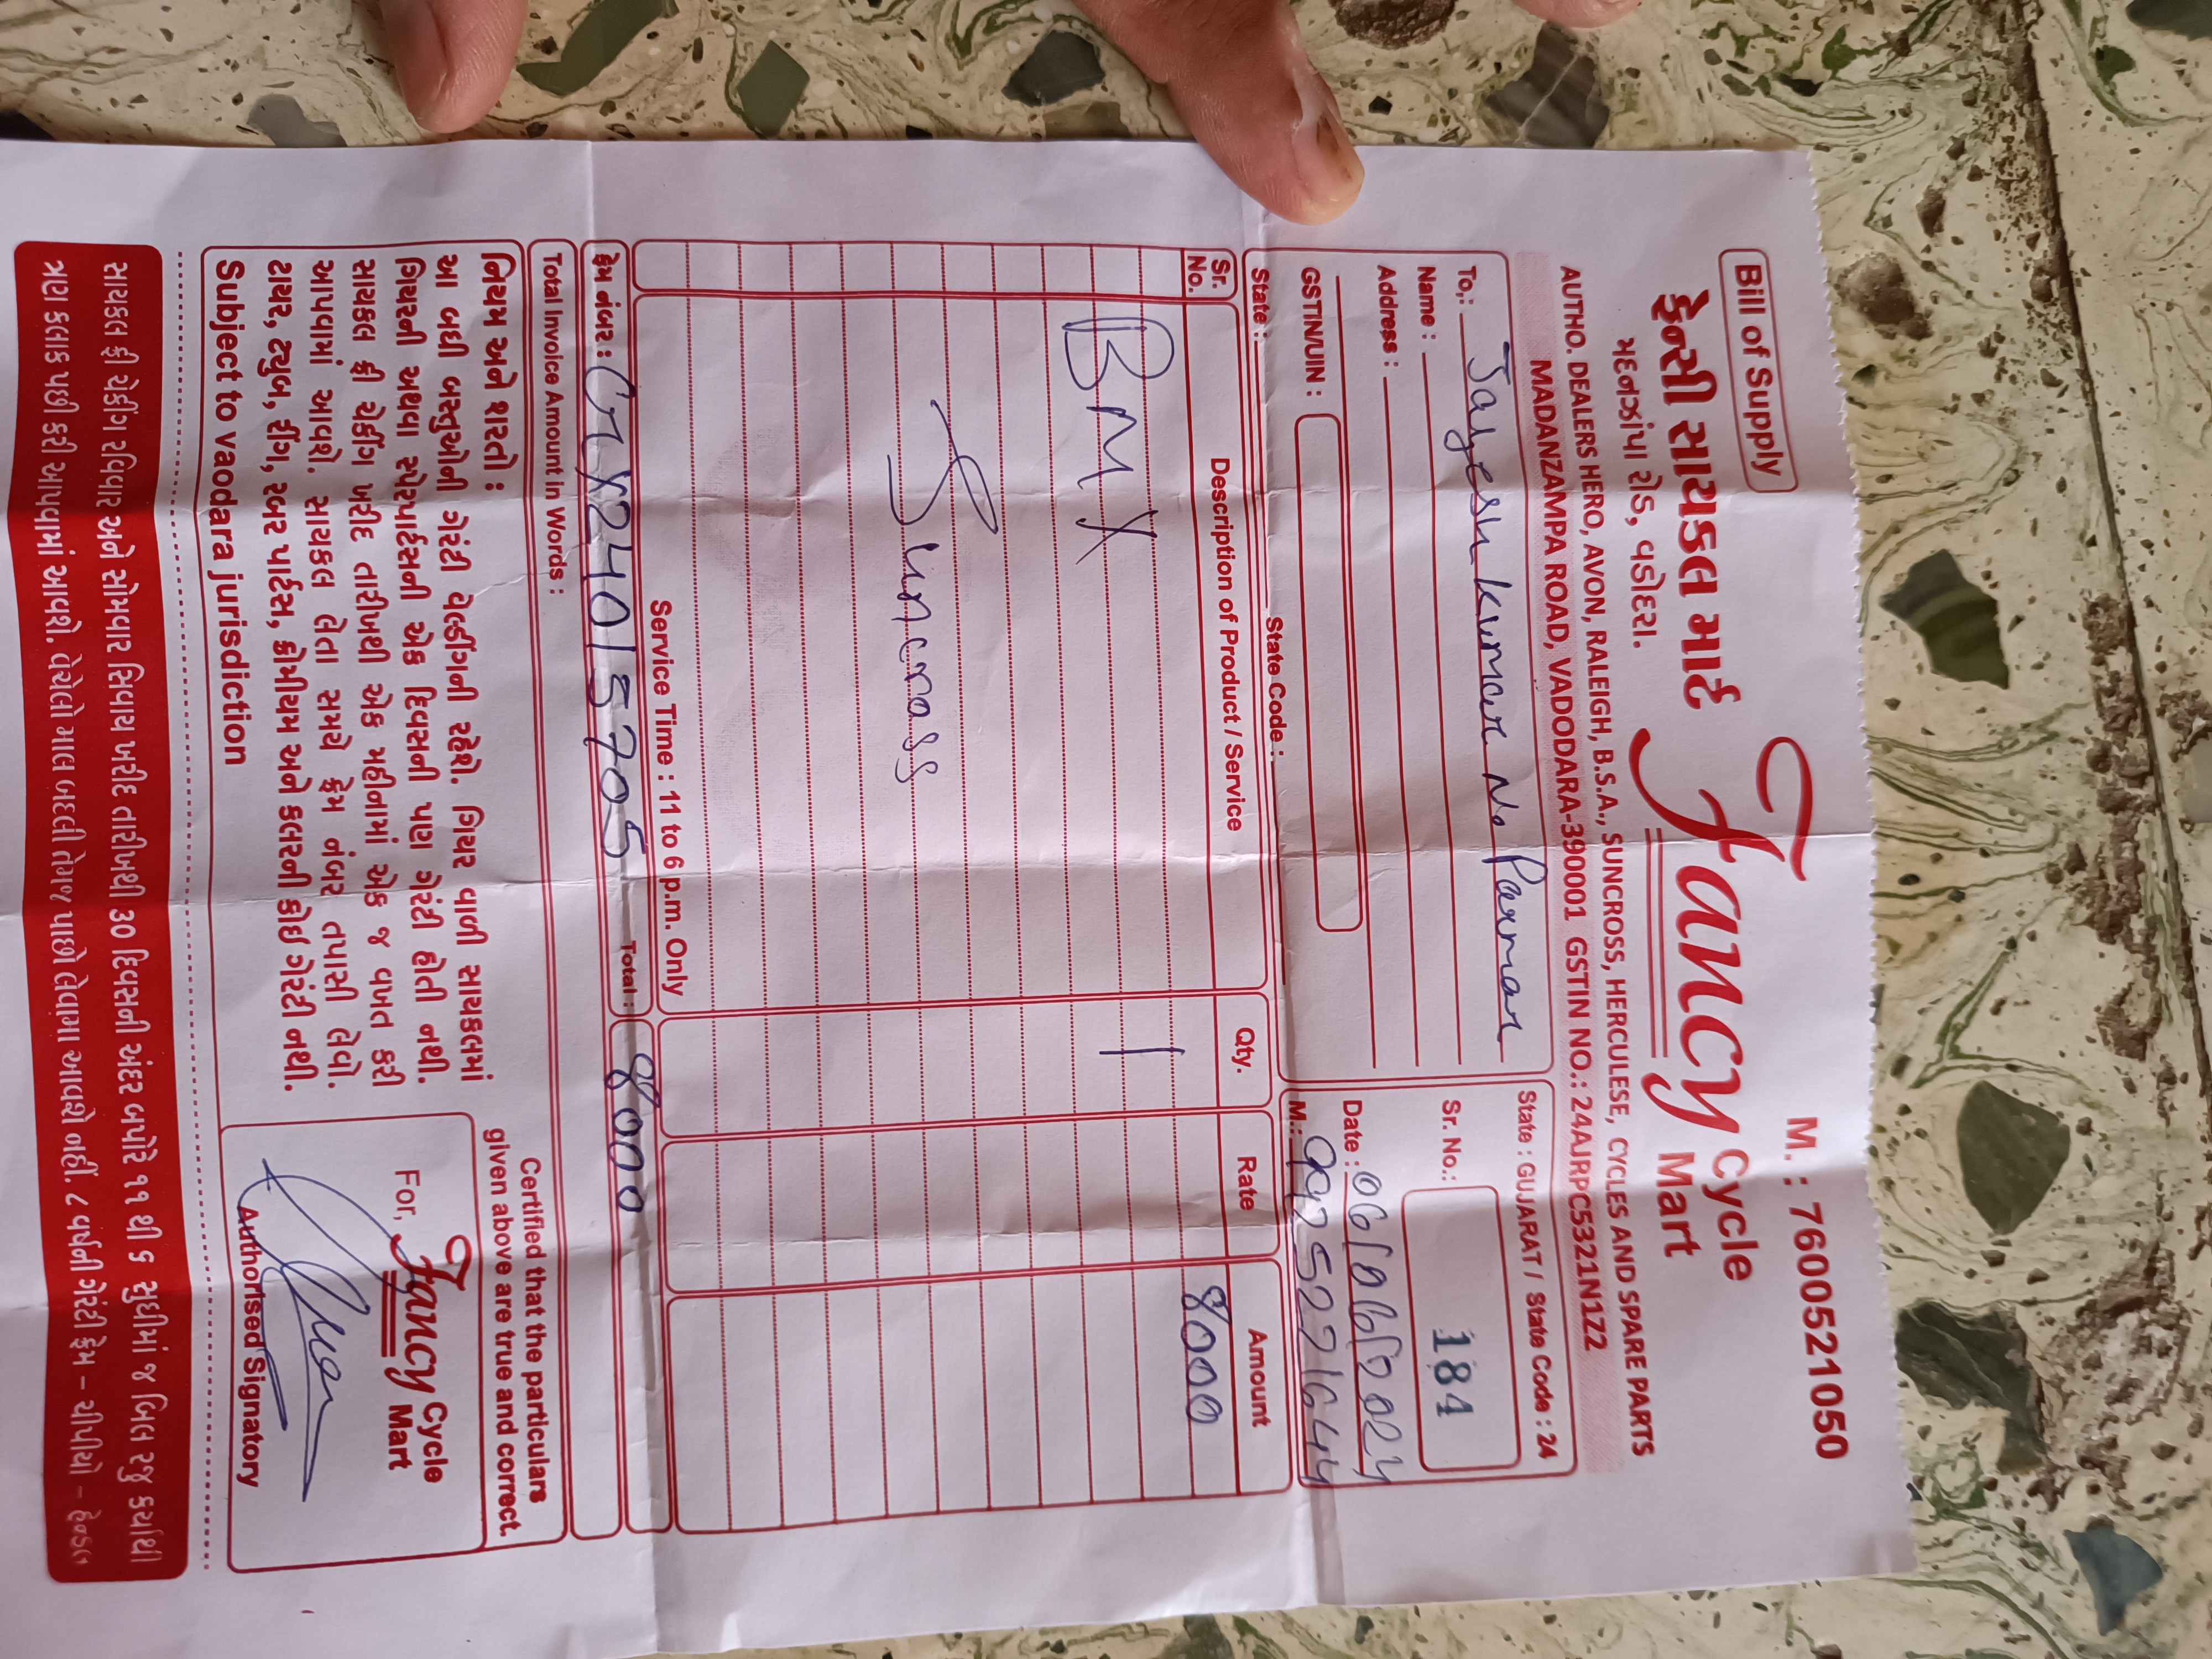 Bill of Supply
M. : 7600521050
ફેન્સી સાયકલ માર્ટ
Fancy Cycle Mart
મદનઝાંપા રોડ, વડોદરા.
AUTHO. DEALERS HERO, AVON, RALEIGH, B.S.A., SUNCROSS, HERCULESE, CYCLES AND SPARE PARTS
MADANZAMPA ROAD, VADODARA-390001 GSTIN NO.: 24AJRPC5321N1Z2
To,: Jayesh kumar N. Parmar
Name :
Address :
GSTIN/UIN :
State :
State Code :
State : GUJARAT / State Code : 24
Sr. No.: 184
Date : 06/06/2024
M.: 9925271644
Sr. No.
Description of Product / Service
Qty.
Rate
Amount
BMX
1
8000
Suncross
Service Time : 11 to 6 p.m. Only
ફ્રેમ નંબર : 24015705
Total : 8000
Total Invoice Amount in Words :
નિયમ અને શરતો :
આ બધી વસ્તુઓની ગેરંટી વેલ્ડીંગની રહેશે. ગિયર વાળી સાયકલમાં
ગિયરની અથવા સ્પેરપાર્ટસની એક દિવસની પણ ગેરંટી હોતી નથી.
સાયકલ ફ્રી ચેકીંગ ખરીદ તારીખથી એક મહીનામાં એક જ વખત કરી
આપવામાં આવશે. સાયકલ લેતા સમયે ફ્રેમ નંબર તપાસી લેવો.
ટાયર, ટ્યુબ, રીંગ, રબર પાર્ટસ, ક્રોમીયમ અને કલરની કોઈ ગેરંટી નથી.
Subject to vaodara jurisdiction
Certified that the particulars
given above are true and correct.
For, Fancy Cycle Mart
Authorised Signatory
સાયકલ ફ્રી ચેકીંગ રવિવાર અને સોમવાર સિવાય ખરીદ તારીખથી ૩૦ દિવસની અંદર બપોરે ૧૧ થી ૬ સુધીમાં જ બિલ રજુ કર્યાથી
ત્રણ કલાક પછી કરી આપવામાં આવશે. વેચેલો માલ બદલી તેમજ પાછો લેવામાં આવશે નહીં. ૮ વર્ષની ગેરંટી ફ્રેમ – ચીપીયો – હેન્ડલ